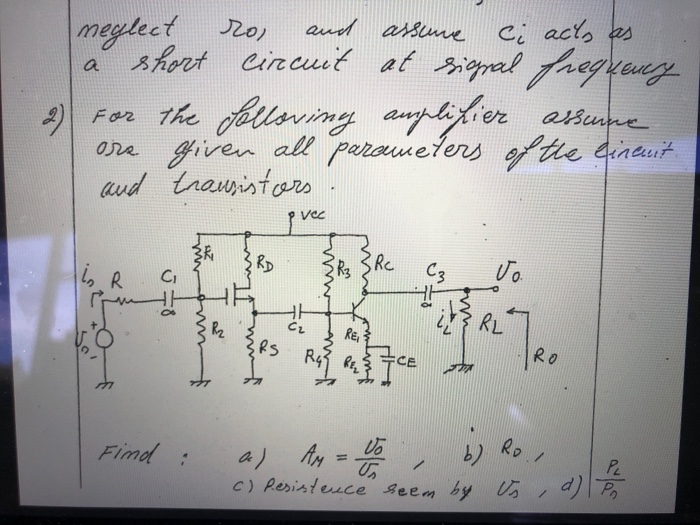 neglect ro, and assume Ci acts as
a short circuit at signal frequency
2) For the following amplifier assume
are given all parameters of the circuit
and transistors.
Vcc
is R C1 ∞ R1 RD R3 RC C3 ∞ Vo
Vs + - R2 RS C2 R4 RE1 RE2 CE iL RL RO
Find : a) AM = Vo/Vs , b) Ro.,
c) Resistence seem by Vs , d) PL/Ps